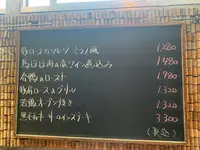 豚ロースカツレツ ミラノ風 1,280
馬ほほ肉の赤ワイン煮込み 1,480
合鴨のロースト 1,980
豚肩ロースのグリル 1,320
若鶏オーブン焼き 1,320
黒毛和牛 サーロインステーキ 3,300
(税込)